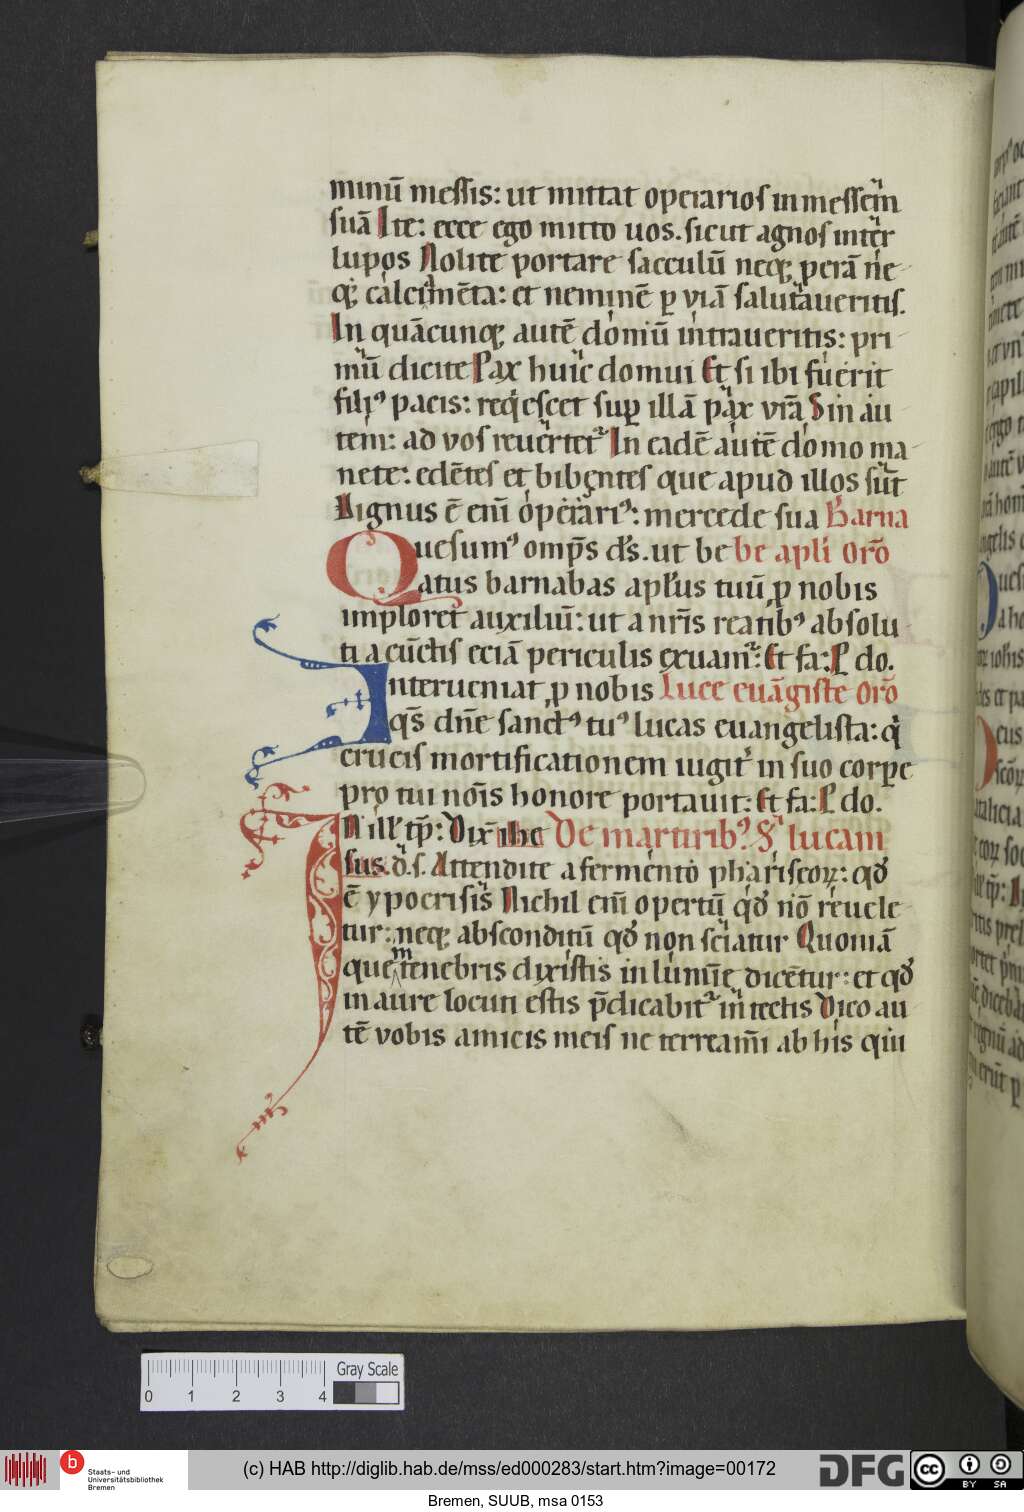 minū messis: ut mittat operarios in messem
suā Ite: ecce ego mitto uos. sicut agnos inter
lupos Nolite portare sacculū neq; perā ne
q; calciam̄ēta: et neminē p̱ viā salutaueritis.
In quācunq; autē domū intraueritis: pri
mū dicite Pax huic domui Et si ibi fuerit
filiꝰ pacis: reqͥescet sup̱ illā pax vrā Sin au
tem: ad vos reuertetᷣ In eadē autē domo ma
nete: edētes et bibentes que apud illos sūt
Dignus ē em̄ operariꝰ: mercede sua Barna
Quesumꝰ omp̄s ds̄. ut be be apl̄i orō
atus barnabas apl̄us tuū p̱ nobis
imploret auxiliū: ut a nr̄is reatibꝰ absolu
ti a cūctis eciā periculis exuamᷣ: Et fa: P do.
Interueniat p̱ nobis Luce euāgiste orō
qs̄ dn̄e sanctꝰ tuꝰ lucas euangelista: qͥ
crucis mortificationem iugitᷣ in suo corpe
pro tui noīs honore portauit: Et fa: P do.
In ill' tp̄: Dix̄ ihc De martiribꝰ Sᷤ lucam
sus. d. s. Attendite a fermento phariseoꝝ: qd'
ē ypocrisis Nichil em̄ opertū qd' nō reuele
tur: neq; absconditū qd' non sciatur Quoniā
que in tenebris dixistis in lumīe dicētur: et qd'
in aure locuti estis p̄dicabitᷣ in tectis Dico au
tē vobis amicis meis ne terreamī ab his qui
0 1 2 3 4
Gray Scale
b
Staats- und
Universitätsbibliothek
Bremen
(c) HAB http://diglib.hab.de/mss/ed000283/start.htm?image=00172
DFG
cc BY SA
Bremen, SUUB, msa 0153